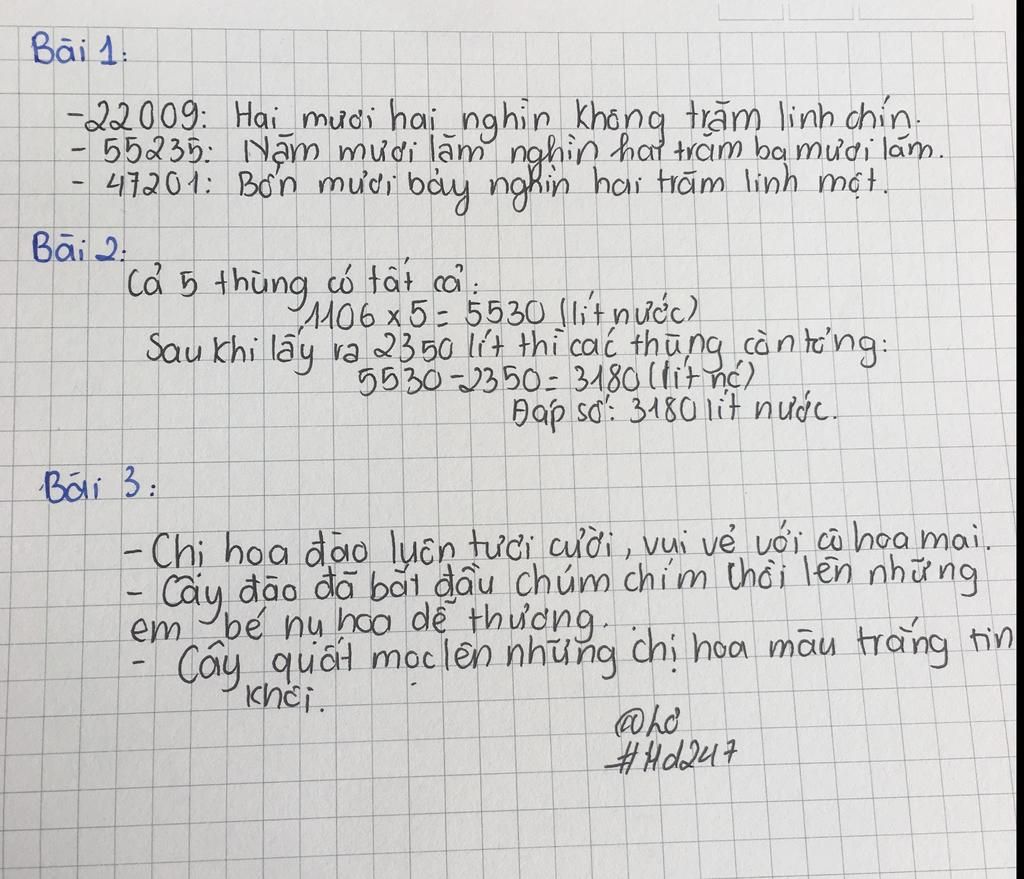 Bài 1:
- 22009: Hai mươi hai nghìn không trăm linh chín.
- 55235: Năm mươi lăm nghìn hai trăm ba mươi lăm.
- 47201: Bốn mươi bảy nghìn hai trăm linh một.
Bài 2:
Cả 5 thùng có tất cả:
1106 x 5 = 5530 (lít nước)
Sau khi lấy ra 2350 lít thì các thùng còn tổng:
5530 - 2350 = 3180 (lít nc)
Đáp số: 3180 lít nước.
Bài 3:
- Chị hoa đào luôn tươi cười, vui vẻ với cô hoa mai.
- Cây đào đã bắt đầu chúm chím chồi lên những
em bé nụ hoa dễ thương.
- Cây quất mọc lên những chị hoa màu trắng tin
khôi.
@ho
#Hd247